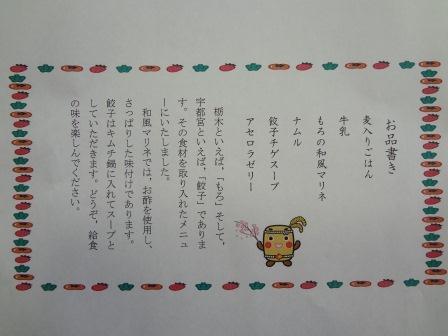 お品書き
麦入りごはん
牛乳
もろの和風マリネ
ナムル
餃子チゲスープ
アセロラゼリー
栃木といえば、「もろ」そして、
宇都宮といえば、「餃子」でありま
す。その食材を取り入れたメニュ
ーにいたしました。
和風マリネでは、お酢を使用し、
さっぱりした味付けであります。
餃子はキムチ鍋に入れてスープと
していただきます。どうぞ、給食
の味を楽しんでください。